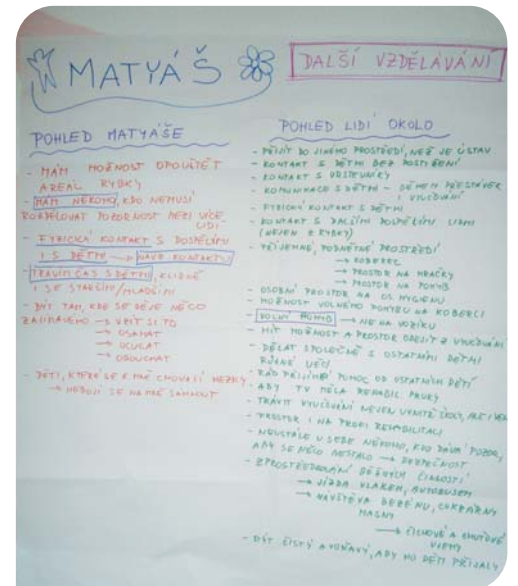 MATYÁŠ
DALŠÍ VZDĚLÁVÁNÍ
POHLED MATYÁŠE
- MÁM MOŽNOST OPOUŠTĚT
AREÁL RYBKY
- MÁM NĚKOHO, KDO NEMUSÍ
ROZDĚLOVAT POZORNOST MEZI VÍCE
LIDÍ
- FYZICKÝ KONTAKT S DOSPĚLÝMI
I S DĚTMI → KONTAKTU
- TRÁVIT ČAS S DĚTMI, KLIDNĚ
I SE STARŠÍMI/MLADŠÍMI
- BÝT TAM, KDE SE DĚJE NĚCO
ZAJÍMAVÉHO → VZÍT SI TO
→ OSAHAT
→ OCUCAT
→ OBOUCHAT
- DĚTI, KTERÉ SE KE MNĚ CHOVAJÍ HEZKY
→ NEBOJÍ SE NA MNE SÁHNOUT
POHLED LIDÍ OKOLO
- PŘIJÍT DO JINÉHO PROSTŘEDÍ, NEŽ JE ÚSTAV
- KONTAKT S DĚTMI BEZ POSTIŽENÍ
- KONTAKT S VRSTEVNÍKY
- KOMUNIKACE S DĚTMI - BĚHEM PŘESTÁVEK
I VYUČOVÁNÍ
- FYZICKÝ KONTAKT S DĚTMI
- KONTAKT S DALŠÍMI DOSPĚLÝMI LIDMI
(NEJEN Z RYBKY)
- PŘÍJEMNÉ, PODNĚTNÉ PROSTŘEDÍ
→ KOBEREC
→ PROSTOR NA HRAČKY
→ PROSTOR NA POHYB
- OSOBNÍ PROSTOR NA OS. HYGIENU
- MOŽNOST VOLNÉHO POHYBU NA KOBERCI
- VOLNÝ POHYB → NE NA VOZÍKU
- MÍT MOŽNOST A PROSTOR ODEJÍT Z VYUČOVÁNÍ
- DĚLAT SPOLEČNĚ S OSTATNÍMI DĚTMI
RŮZNÉ VĚCI
- RÁD PŘIJÍMÁ POMOC OD OSTATNÍCH DĚTÍ
- ABY TV MĚLA REHABIL. PRVKY
- TRÁVIT VYUČOVÁNÍ NEJEN UVNITŘ ŠKOLY, ALE I VEN
- PROSTOR I NA PROFI REHABILITACI
- NEUSTÁLE U SEBE NĚKOHO, KDO DÁVÁ POZOR,
ABY SE NĚCO NESTALO → BEZPEČNOST
- ZPROSTŘEDKOVÁNÍ BĚŽNÝCH ČINNOSTÍ
→ JÍZDA VLAKEM, AUTOBUSEM
→ NÁVŠTĚVA BAZÉNU, CUKRÁRNY
→ ČICHOVÉ A CHUŤOVÉ
VJEMY
- BÝT ČISTÝ A VOŇAVÝ, ABY HO DĚTI PŘIJALY